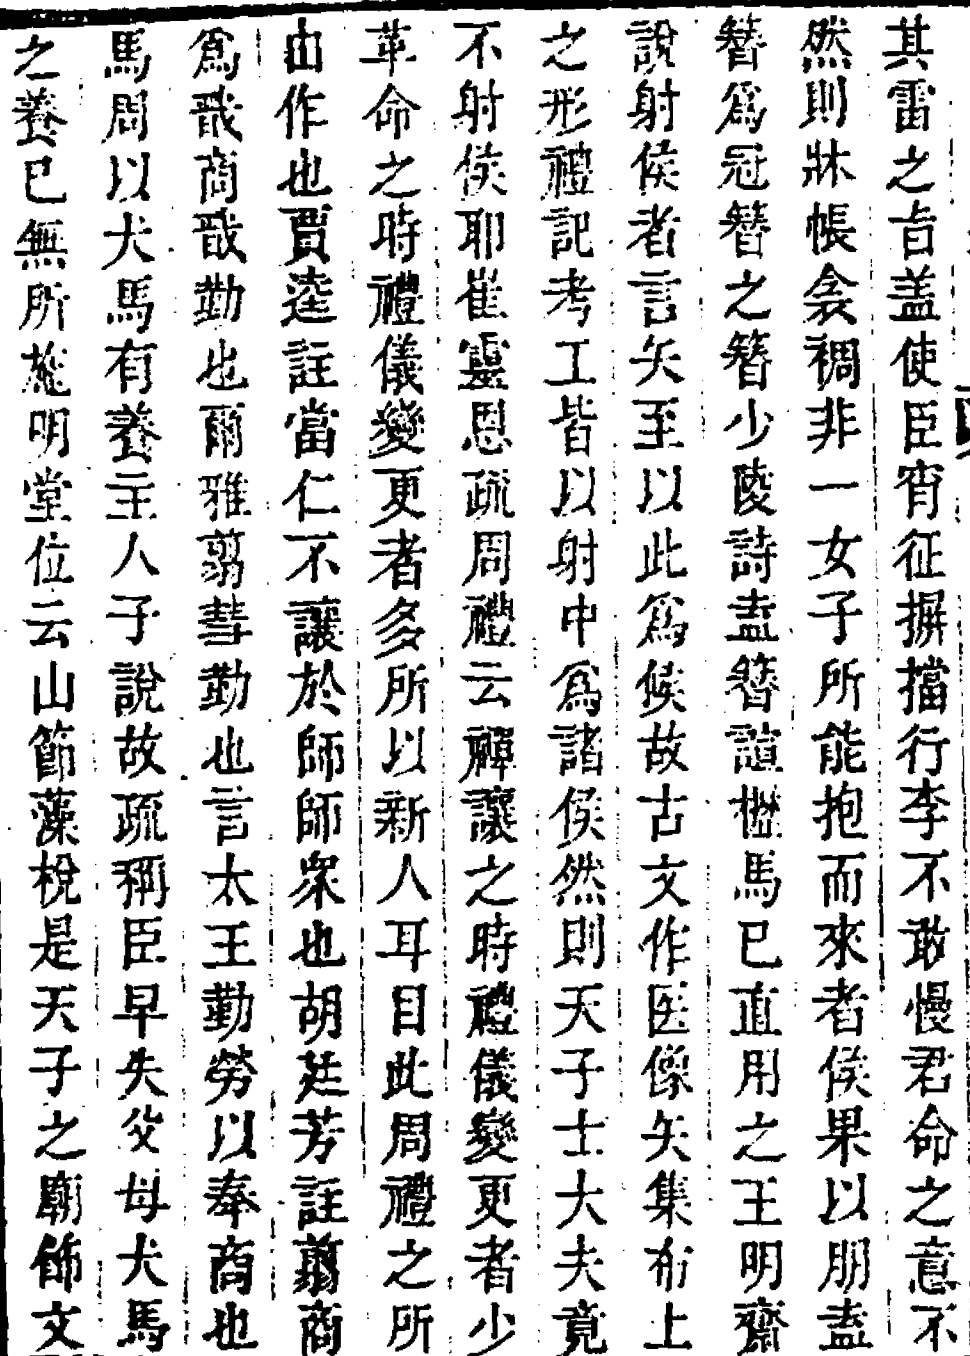 其雷之㫖盖使臣宵征摒擋行李不敢慢君命之意不
然則牀帳衾裯非一女子所能抱而來者侯果以朋盍
簪爲冠簪之簪少陵詩盍簪諠櫪馬已直用之王明齋
說射侯者言矢至以此爲候故古文作医像矢集布上
之形禮記考工皆以射中爲諸侯然則天子士大夫竟
不射侯耶崔靈恩疏周禮云禪讓之時禮儀變更者少
革命之時禮儀變更者多所以新人耳目此周禮之所
由作也賈逵註當仁不讓於師師衆也胡廷芳註翦商
爲戩商戩勤也爾雅翦彗勤也言太王勤勞以奉商也
馬周以犬馬有養主人子說故疏稱臣早失父母犬馬
之養已無所施明堂位云山節藻梲是天子之廟飾文